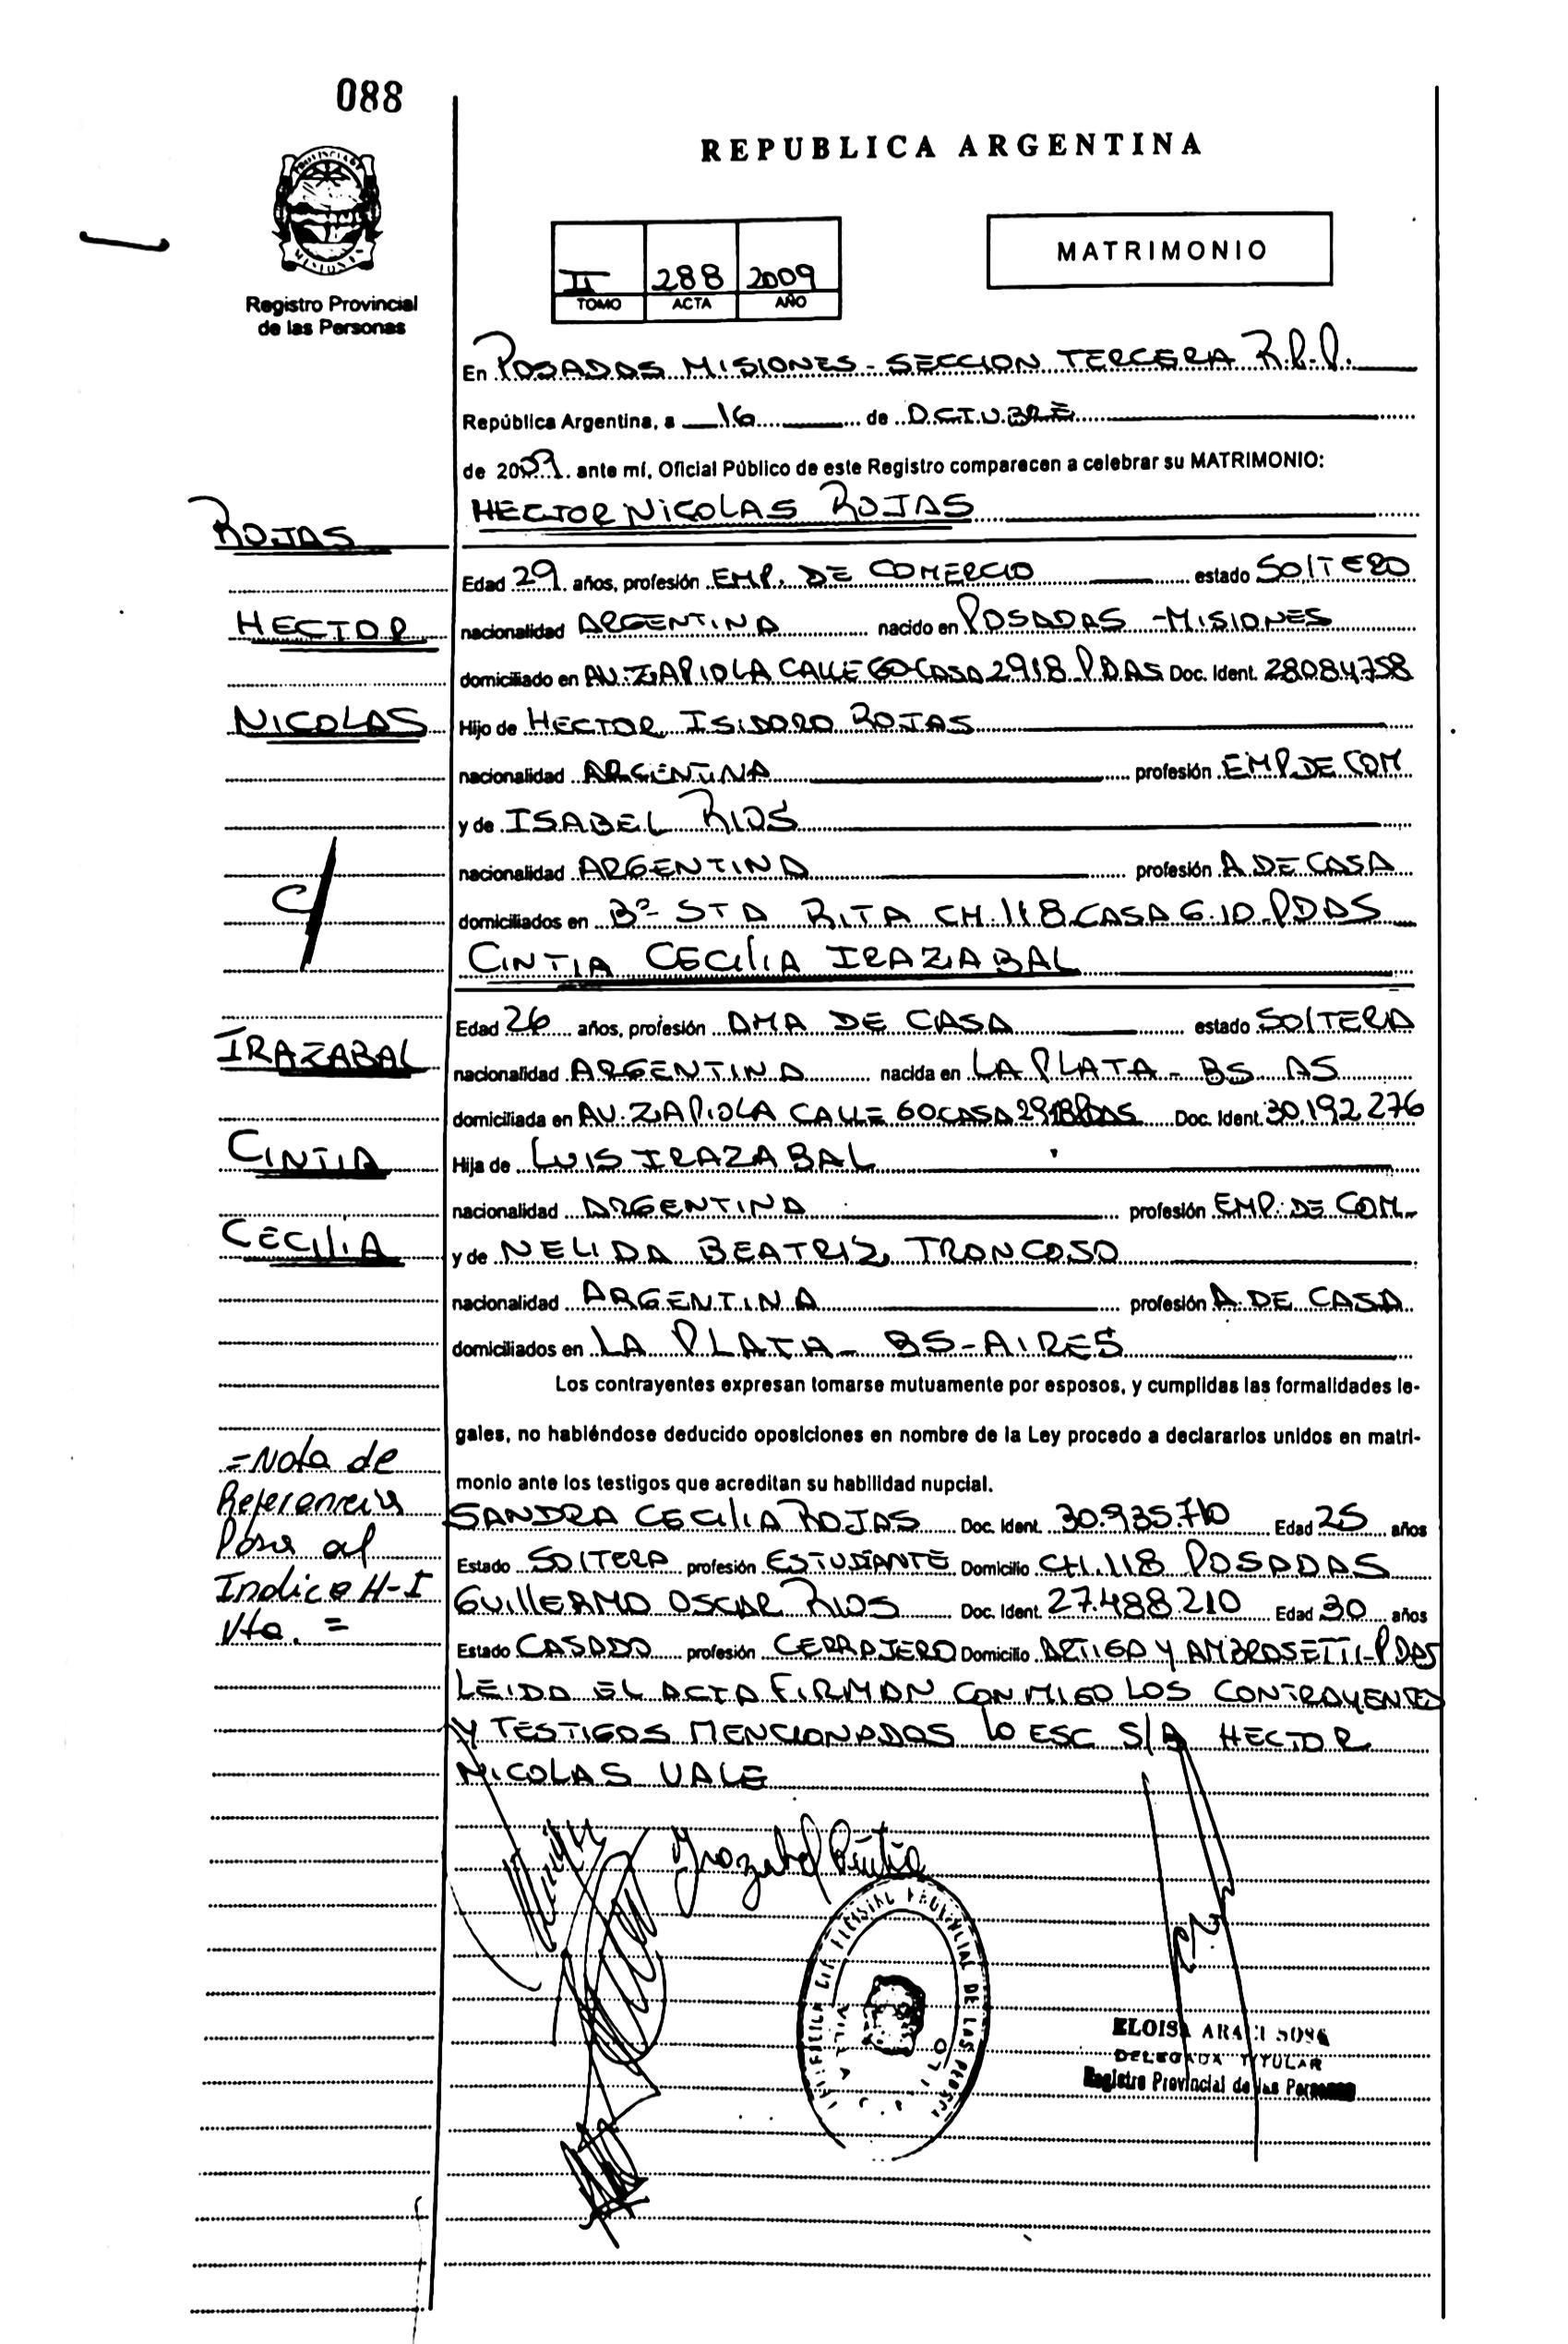 088
REPUBLICA ARGENTINA
MATRIMONIO
II 288 2009
TOMO ACTA AÑO
Registro Provincial
de las Personas
En POSADAS MISIONES - SECCION TERCERA R.P.P.
República Argentina, a 16 de OCTUBRE
de 2009 ante mí, Oficial Público de este Registro comparecen a celebrar su MATRIMONIO:
HECTOR NICOLAS ROJAS
ROJAS
Edad 29 años, profesión EMP. DE COMERCIO estado SOLTERO
HECTOR
nacionalidad ARGENTINA nacido en POSADAS - MISIONES
domiciliado en AV. ZAPIOLA CALLE 60 CASA 2918 PDAS Doc. Ident. 28084758
NICOLAS
Hijo de HECTOR ISIDORO ROJAS
nacionalidad ARGENTINA profesión EMP. DE COM
y de ISABEL RIOS
nacionalidad ARGENTINA profesión A DE CASA
C/
domiciliados en Bº STA RITA CH. 118 CASA 6.10 PDAS
CINTIA CECILIA IRAZABAL
Edad 26 años, profesión AMA DE CASA estado SOLTERA
IRAZABAL
nacionalidad ARGENTINA nacida en LA PLATA - BS AS
domiciliada en AV. ZAPIOLA CALLE 60 CASA 2918 PDAS Doc. Ident. 30.192.276
CINTIA
Hija de LUIS IRAZABAL
nacionalidad ARGENTINA profesión EMP. DE COM.
CECILIA
y de NELIDA BEATRIZ TRONCOSO
nacionalidad ARGENTINA profesión A. DE CASA
domiciliados en LA PLATA - BS-AIRES
Los contrayentes expresan tomarse mutuamente por esposos, y cumplidas las formalidades le-
gales, no habiéndose deducido oposiciones en nombre de la Ley procedo a declararlos unidos en matri-
monio ante los testigos que acreditan su habilidad nupcial.
=Nota de
Referencia
Pasa al
Indice H-I
Vta. =
SANDRA CECILIA ROJAS Doc. Ident. 30.935.710 Edad 25 años
Estado SOLTERA profesión ESTUDIANTE Domicilio CH. 118 POSADAS
GUILLERMO OSCAR RIOS Doc. Ident. 27.488.210 Edad 30 años
Estado CASADO profesión CERRAJERO Domicilio ARTIGA Y AMBROSETTI - PDAS
LEIDA EL ACTA FIRMAN CONMIGO LOS CONTRAYENTES
Y TESTIGOS MENCIONADOS LO ESC S/B HECTOR
NICOLAS VALE
Irazabal Cintia
DE LAS
ELOISA
DELEGADA TITULAR
Registro Provincial de las Personas